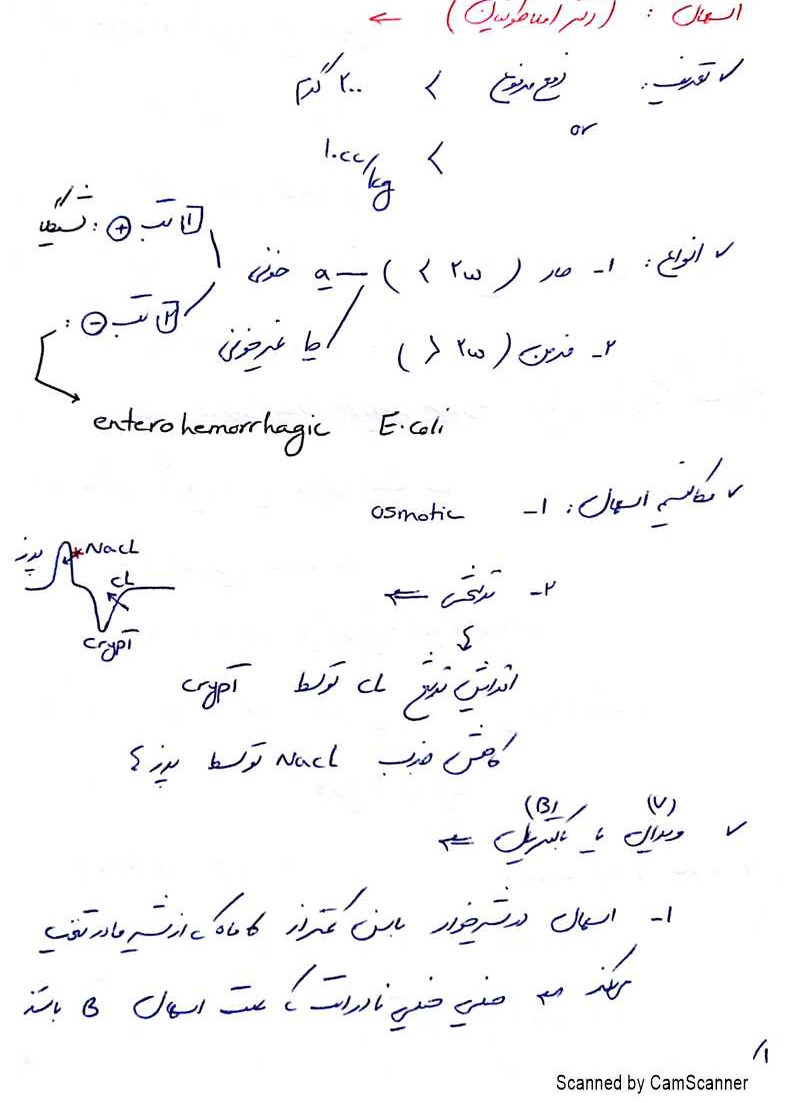 اسهال : (دکتر افلاطونیان) ⇐
✓ تعریف: دفع مدفوع > ۲۰۰ گرم
or
> ۱۰cc/kg
✓ انواع: ۱- حاد (< ۲w) — a خونی
۱ تب ⊕ : شیگلا
۲ تب ⊖ :
enterohemorrhagic E.coli
یا غیرخونی
۲- مزمن (> ۲w)
✓ مکانیسم اسهال: ۱- osmotic
۲- ترشحی ⇐
پرز NaCl
cL
crypt
افزایش ترشح cL توسط crypt
کاهش جذب NaCl توسط پرز
✓ ویرال (V) یا باکتریال (B) ⇐
۱- اسهال در شیرخوار با سن کمتر از ۵ ماه که از شیر مادر تغذیه
میکند خیلی خیلی نادر است که علت اسهال B باشد
۱/
Scanned by CamScanner